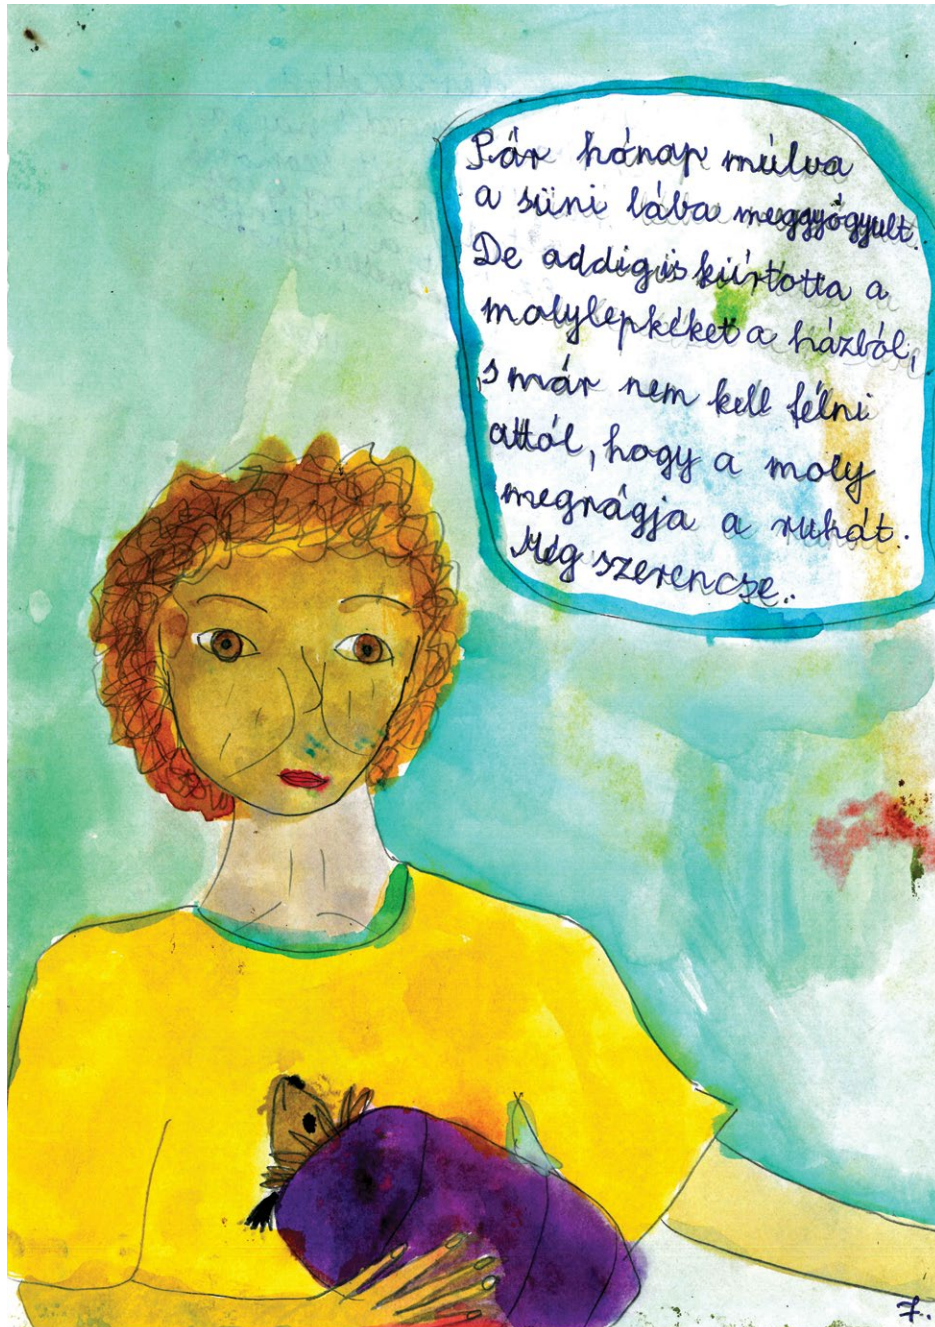 Pár hónap múlva
a süni lába meggyógyult.
De addig is kiírtotta a
molylepkéket a házból,
s már nem kell félni
attól, hogy a moly
megrágja a ruhát.
Még szerencse..
7.